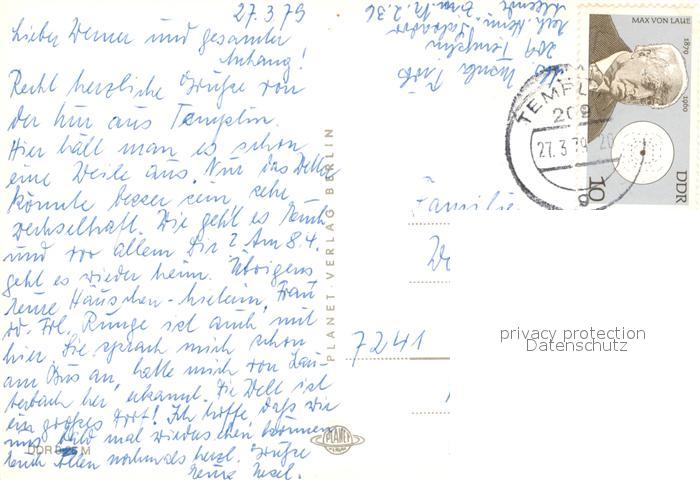 27.3.79
Lieber Werner und gesamter
Anhang!
Recht herzliche Grüße von
der Kur aus Templin.
Hier hält man es schon
eine Weile aus. Nur das Wetter
könnte besser sein, sehr
wechselhaft. Wie geht es Euch
und vor allem Dir? Am 8.4.
geht es wieder heim. Übrigens
Deine Häuschen- Frau
od. Frl. Runge ist auch mit
hier. Sie sprach mich schon
am Bus an, hatte mich von Lau-
terbach her erkannt. Die Welt ist
ein großes Dorf! Ich hoffe, daß wir
uns bald mal wiedersehen können.
Euch Allen nochmals herzl. Grüße
PLANET-VERLAG BERLIN
PLANET
DDR
M
209 Templin
Salvador
Zim. Nr. 2.36
MAX VON LAUE
1879
1960
DDR
10
TEMPLIN
209
27.3.79
Familie
7241
privacy protection
Datenschutz